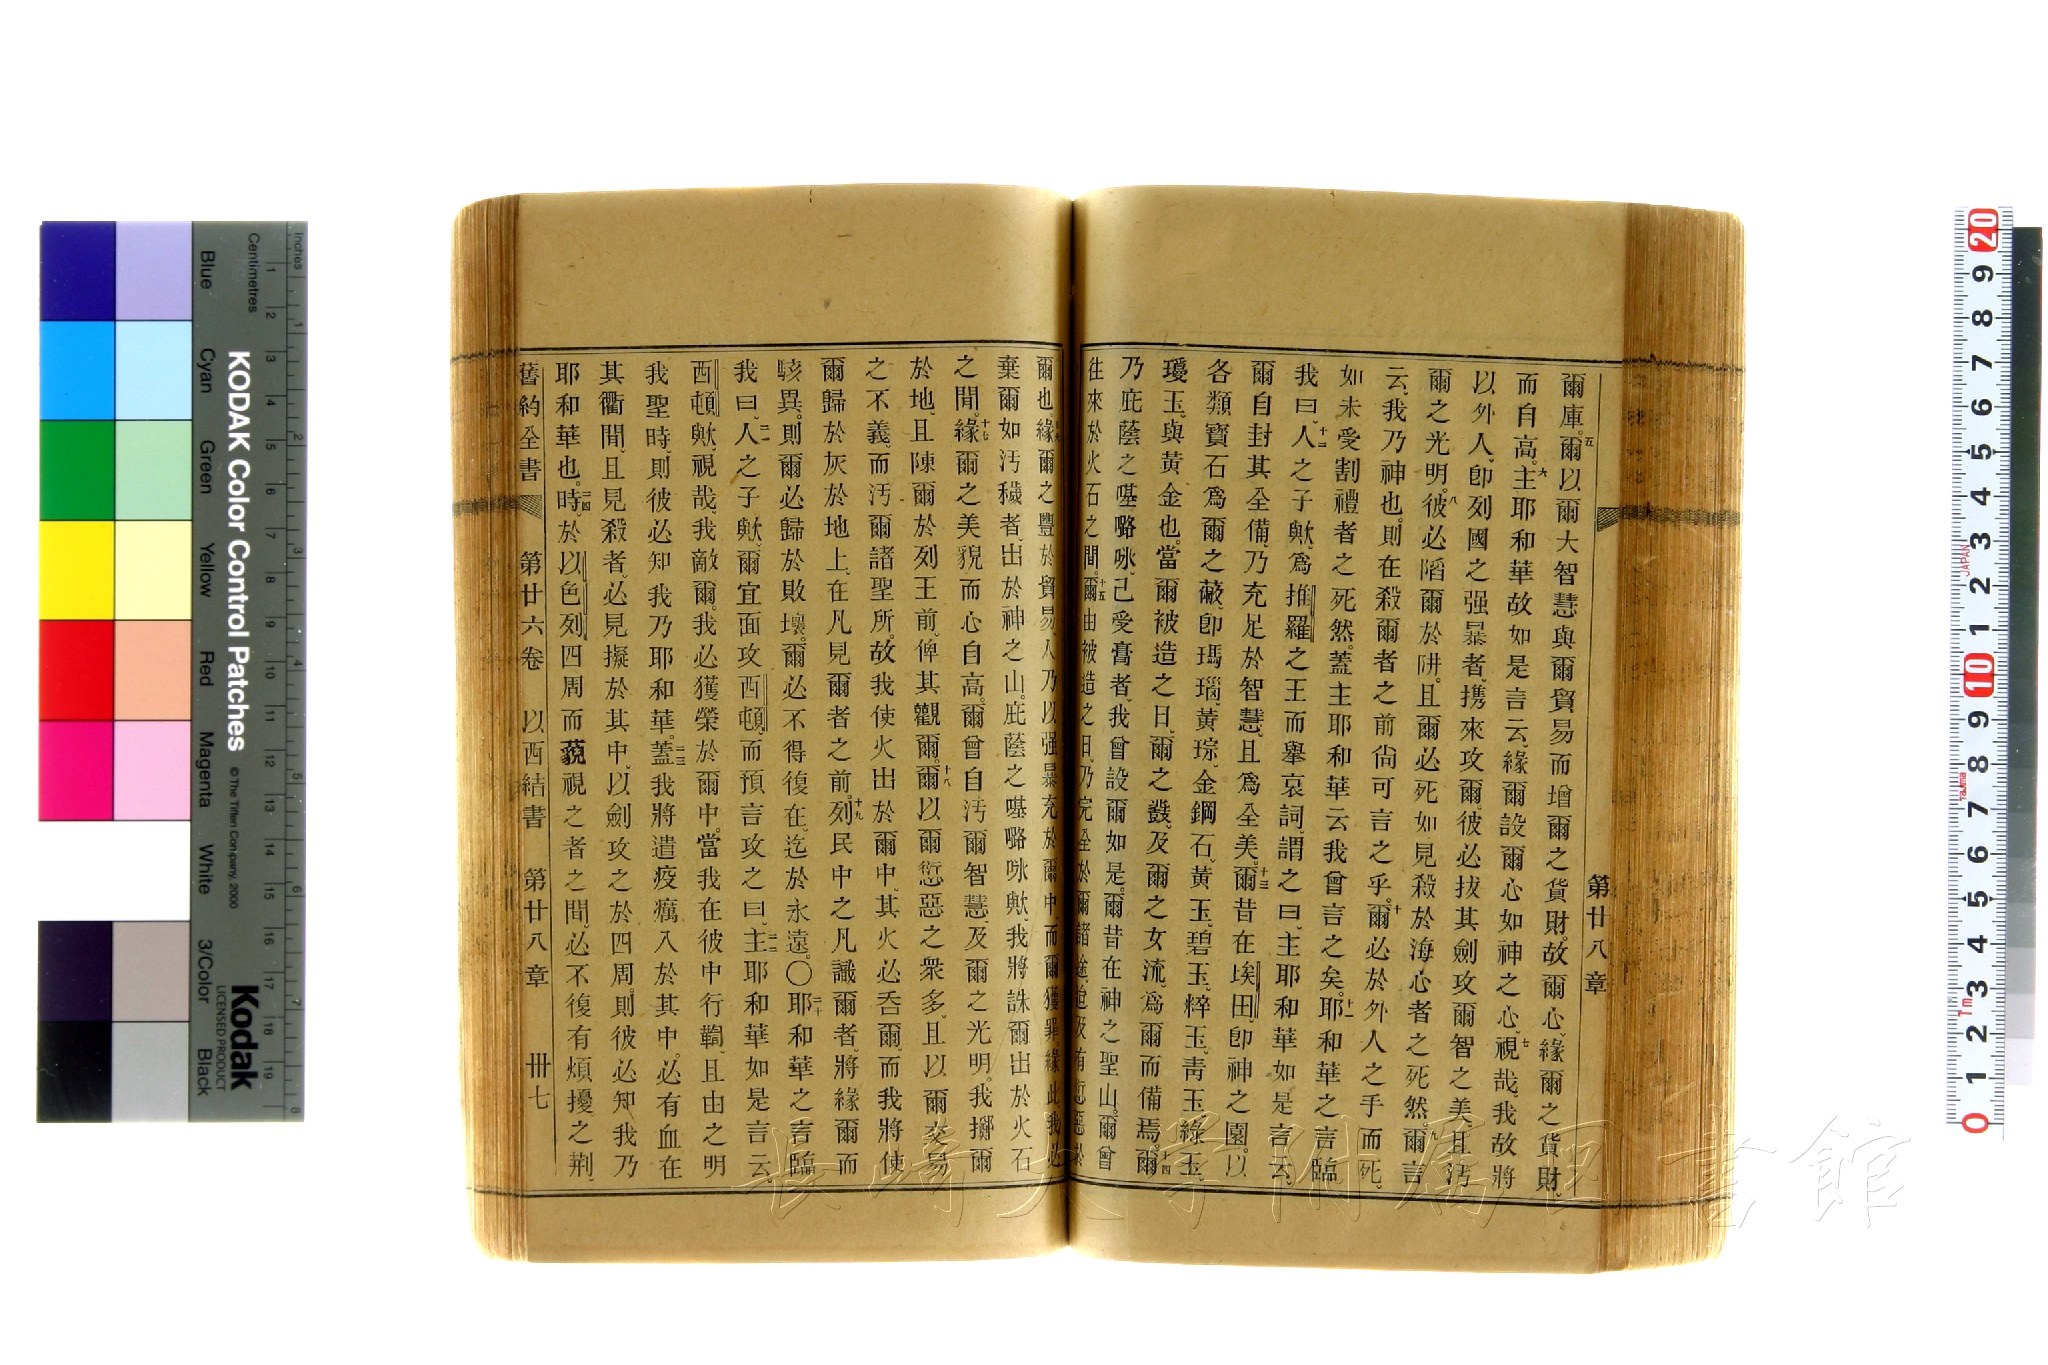 第廿八章
爾庫。五爾以爾大智慧與爾貿易而增爾之貨財。故爾心、緣爾之貨財、
而自高。六主耶和華故如是言云、緣爾設爾心如神之心、七視哉、我故將
以外人、卽列國之强暴者、携來攻爾。彼必拔其劍攻爾智之美且汚
爾之光明。八彼必陷爾於阱。且爾必死如見殺於海心者之死然。九爾言
云、我乃神也。則在殺爾者之前尙可言之乎。十爾必於外人之手而死。
如未受割禮者之死然。蓋主耶和華云我曾言之矣。十一耶和華之言臨
我曰、十二人之子歟、爲推羅之王而舉哀詞、謂之曰、主耶和華如是言云、
爾自封其全備、乃充足於智慧、且爲全美。十三爾昔在埃田、卽神之園。以
各類寶石爲爾之蔽、卽瑪瑙、黃琮、金鋼石、黃玉、碧玉、粹玉、靑玉、綠玉、
瓊玉、與黃金也。當爾被造之日、爾之鼗、及爾之女流、爲爾而備焉。十四爾
乃庇蔭之𠼻㗉㕲、己受膏者、我曾設爾如是。爾昔在神之聖山。爾曾
往來於火石之間。十五爾由被造之日、乃完全於爾諸途、迨及有愆惡於
爾也。十六緣爾之豐於貿易、人乃以强暴充於爾中、而爾獲罪、緣此我必
棄爾如汚穢者、出於神之山。庇蔭之𠼻㗉㕲歟、我將誅爾出於火石
之間。十七緣爾之美貌而心自高。爾曾自汚爾智慧、及爾之光明。我擲爾
於地、且陳爾於列王前、俾其觀爾。十八爾以爾愆惡之衆多、且以爾交易
之不義、而汚爾諸聖所。故我使火出於爾中、其火必吞爾、而我將使
爾歸於灰於地上、在凡見爾者之前。十九列民中之凡識爾者、將緣爾而
駭異。則爾必歸於敗壞。爾必不得復在、迄於永遠。〇二十耶和華之言臨
我曰、二一人之子歟、爾宜面攻西頓、而預言攻之曰、二二主耶和華如是言云、
西頓歟、視哉、我敵爾。我必獲榮於爾中。當我在彼中行鞫、且由之明
我聖時、則彼必知我乃耶和華。二三蓋我將遣疫癘、入於其中。必有血在
其衢間、且見殺者、必見擬於其中、以劍攻之於四周。則彼必知我乃
耶和華也。二四時、於以色列四周而藐視之者之間、必不復有煩擾之荆、
舊約全書 第廿六卷 以西結書 第廿八章 卅七
KODAK Color Control Patches
© The Tiffen Company, 2000
Kodak
LICENSED PRODUCT
Inches
Centimetres
Blue
Cyan
Green
Yellow
Red
Magenta
White
3/Color
Black
長崎大學附屬圖書館